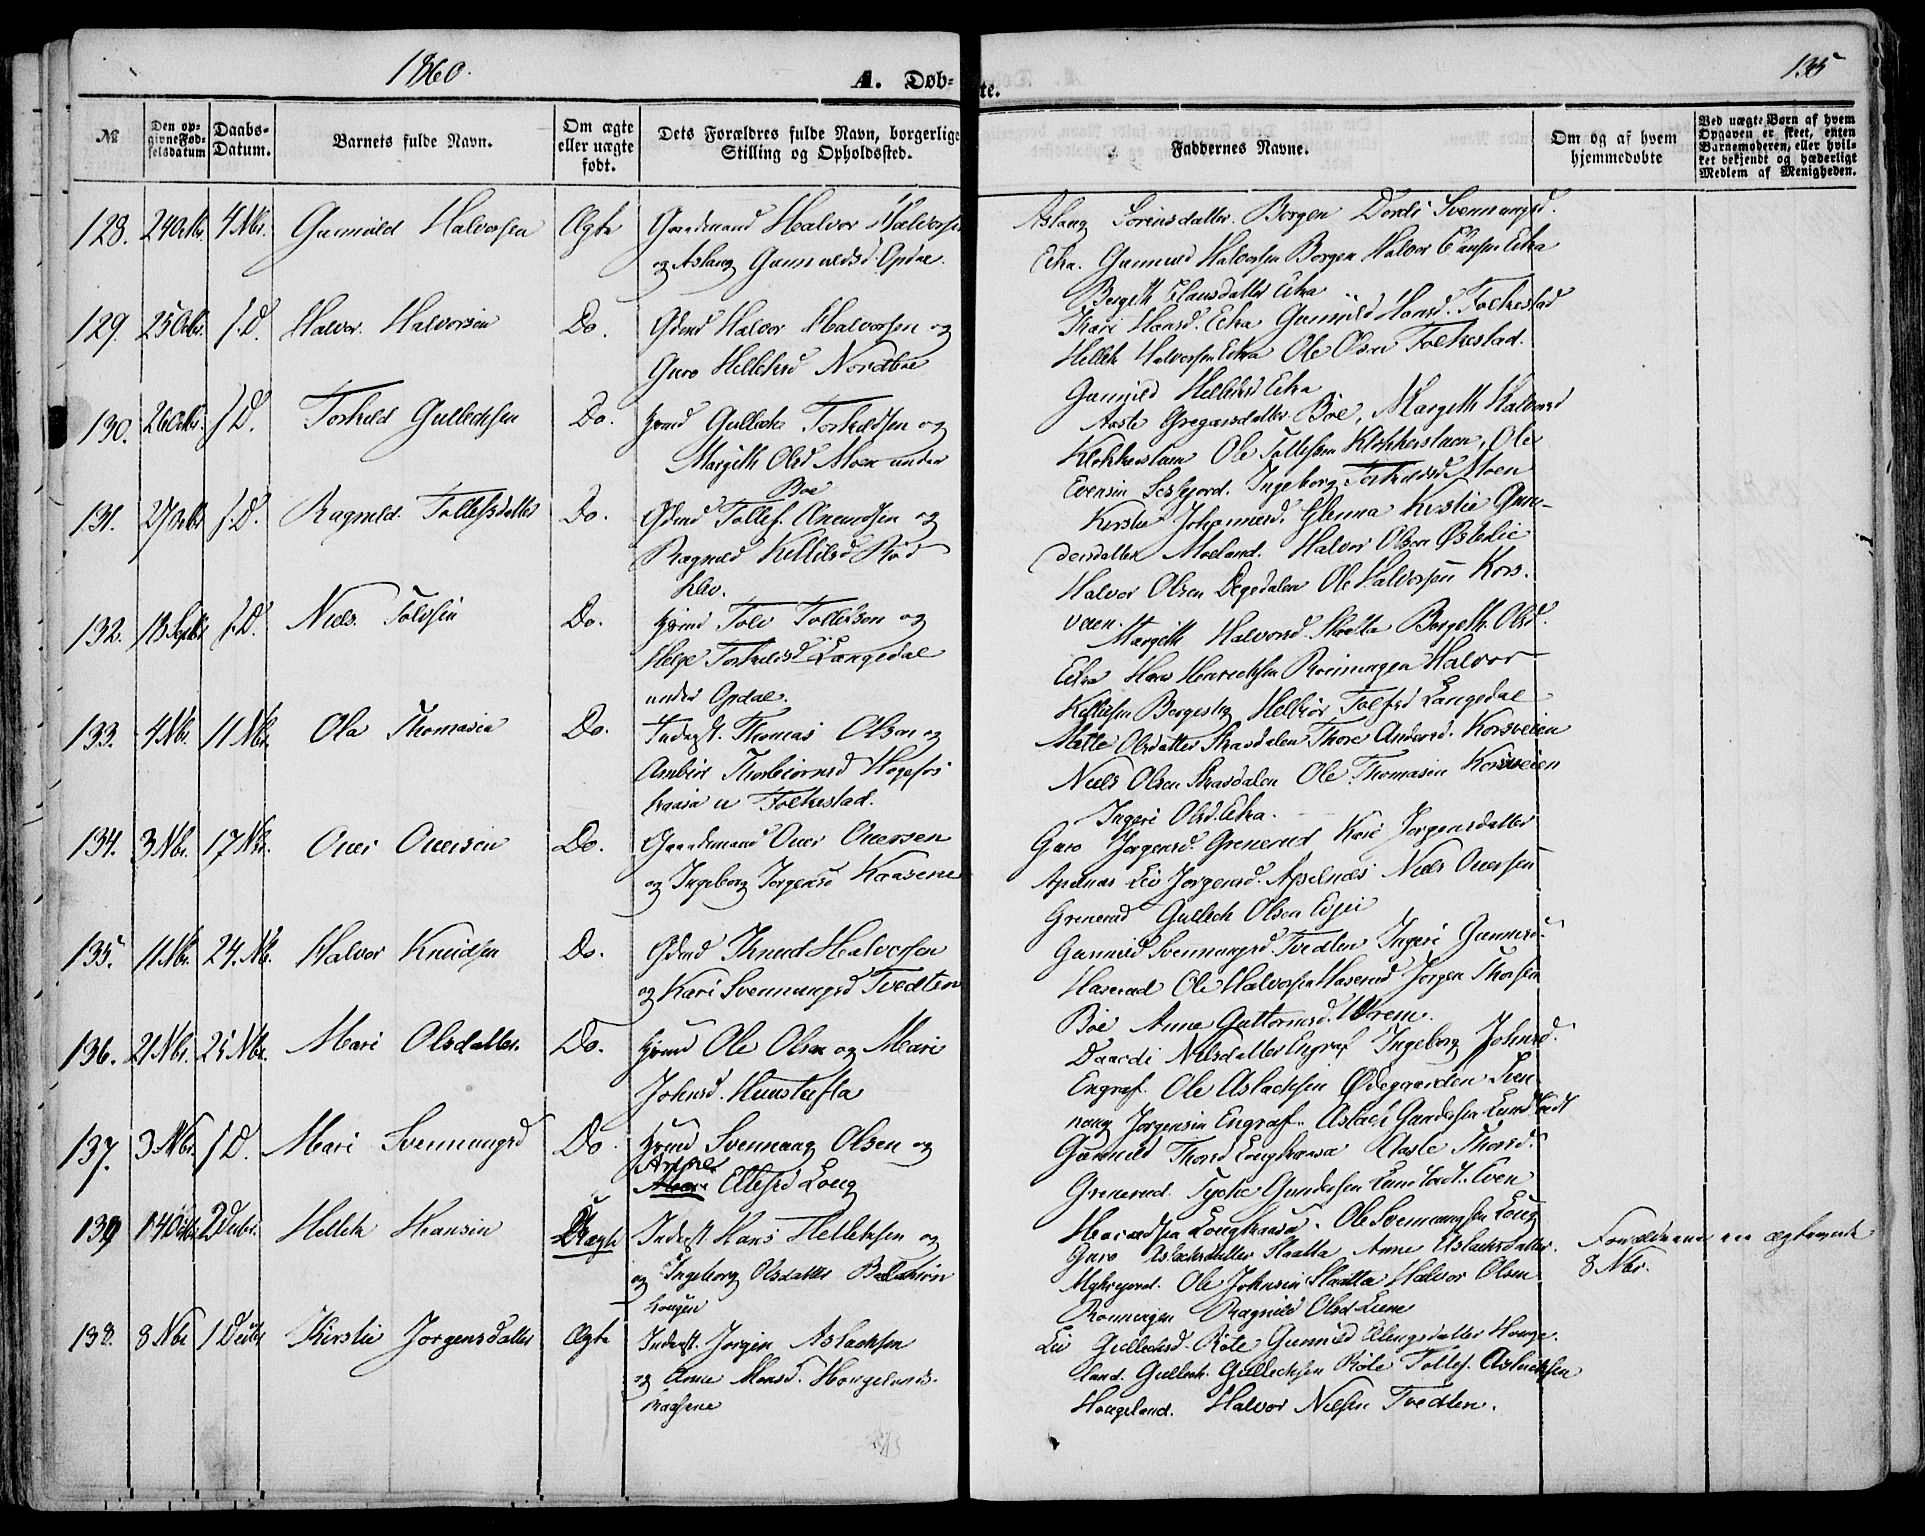 1860.
A. Døb-
te.
135
№
Den op-
givne Fød-
selsdatum
Daabs-
Datum.
Barnets fulde Navn.
Om ægte
eller uægte
født.
Dets Forældres fulde Navn, borgerlige
Stilling og Opholdssted.
Faddernes Navne.
Om og af hvem
hjemmedøbte
Ved uægte Børn af hvem
Opgaven er skeet, enten
Barnemoderen, eller hvil-
ket bekjendt og hæderligt
Medlem af Menigheden.
128. 24 Octbr. 4 Nbr. Gunnild Halvorsen Ægte Gaardmand Halvor Halvorsen
og Aslaug Gunnuldsd. Opdal.
Aslaug Sørensdatter Borgen Dordi Svennungsd.
Eika. Gunnuld Halvorsen Borgen Halvor Clausen Eika
Bergith Clausdatter Eika
129. 25 Octbr. s.D. Halvor Halvorsen Do. Gdmd Halvor Halvorsen og
Guro Helleksd Nordbøe
Kari Hansd. Eika Gunnild Hansd. Folkestad
Hellek Halvorsen Eika Ole Olsen Folkestad.
Gunnild Helleksd Eika
130. 26 Octbr. s.D. Torkild Gulleksen Do. Hmd Gullek Torkildsen og
Margith Olsd Moen under
Bøe
Aaste Gregarsdatter Bøe, Margith Halvorsd
Klokkerstuen Ole Tollefsen Klokkerstuen, Ole
Evensen Sesfjord. Ingeborg Torkildsd Moen
131. 27 Octbr s.D. Ragnild Tollefsdatter Do. Gdmd Tollef Anundsen og
Ragnild Kittilsd Rød
klev.
Kirstie Johannesd. Glenna Kirstie Gun-
dersdatter Moland. Halvor Olsen Østerlie
Halvor Olsen Øygedalen Ole Halvorsen Kors-
veien.
132. 13 Septbr s.D. Niels Tolvsen Do. Hmd Tolv Tollefsen og
Helge Torkildsd Langedal
under Opdal.
Margith Halvorsd. Slaatta Bergith Olsd.
Eika Hans Henrichsen Rønningen Halvor
Kittilsen Bergestig Helleiør Tolfsd Langedal
133. 4 Nbr. 11 Nbr. Ola Thomasen Do. Inderst. Thomas Olsen og
Ambjør Thorbjørnsd Høgefos
kaasa u Folkestad.
Mette Olsdatter Skaardalen Thore Andersd. Korsveien
Niels Olsen Skaardalen Ole Thomasen Korsveien
Ingeri Olsd. Eika.
134. 3 Nbr. 17 Nbr. Over Oversen Do. Gaardmand Over Oversen
og Ingeborg Jørgensd Kaasene
Guro Jørgensd. Grenerud Kari Jørgensdatter
Apelnæs Liv Jørgensd. Apelnæs Niels Oversen
Grenerud Gullek Olsen Evjei
135. 11 Nbr. 24. Nb. Halvor Knudsen Do. Gdmd Knud Halvorsen
og Kari Svennungsd Tvedten
Gunnild Svennungsd. Tvedten Ingeri Gunnersd.
Haserud Ole Halvorsen Haserud Jørgen Thorsen
Bøe Anne Guttormsd. Vreim.
136. 21 Nbr. 25 Nbr. Mari Olsdatter. Do. Hmd Ole Olsen og Mari
Johnsd. Hunstufta
Daardi Nielsdatter Engraf Ingeborg Johnsd.
Engraf. Ole Aslachsen Ødegaarden Sven-
nong Jørgensen Engraf. Aslach Gundersen Lundstadt
137. 3 Nbr s.D. Mari Svennungsd Do. Hmd Svennung Olsen og
Mari Ellefsd Loug
Gunnild Thorsd Lougkaasa Aaste Thorsd.
Grenerud. Tyckie Gundersen Lundstadt. Even
Haraldsen Lougkaasa. Ole Svennungsen Loug
139 14 Octbr 2 Decbr. Hellek Hansen Uægte Inderst. Hans Helleksen og
og Ingeborg Olsdatter
haugen
Guro Aslachsdatter Slaatta Anne Aslachsdatter
Ole Johnsen Slaatta Halvor Olsen
Rønningen Ragnild Olsd. Liene
Forældrene ere ægteviede
8 Nbr.
138. 8 Nbr 1 Decbr Kirstie Jørgensdatter Ægte Inderst. Jørgen Aslachsen
og Anne Monsd. Hougelands-
kaasene
Liv Gullechsd. Røte Gunnild Ellingsdatter Houge-
land. Gullech Gullechsen Røte Tollef Aslachsen
Hougeland. Halvor Nielsen Tvedten.